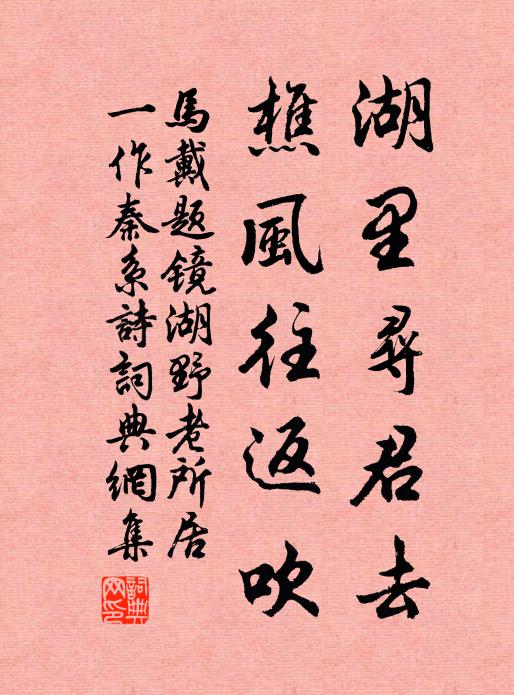 湖里尋君去
樵風往返吹
馬戴題镜湖野老所居
一作秦系詩詞典網集
詞典
网印